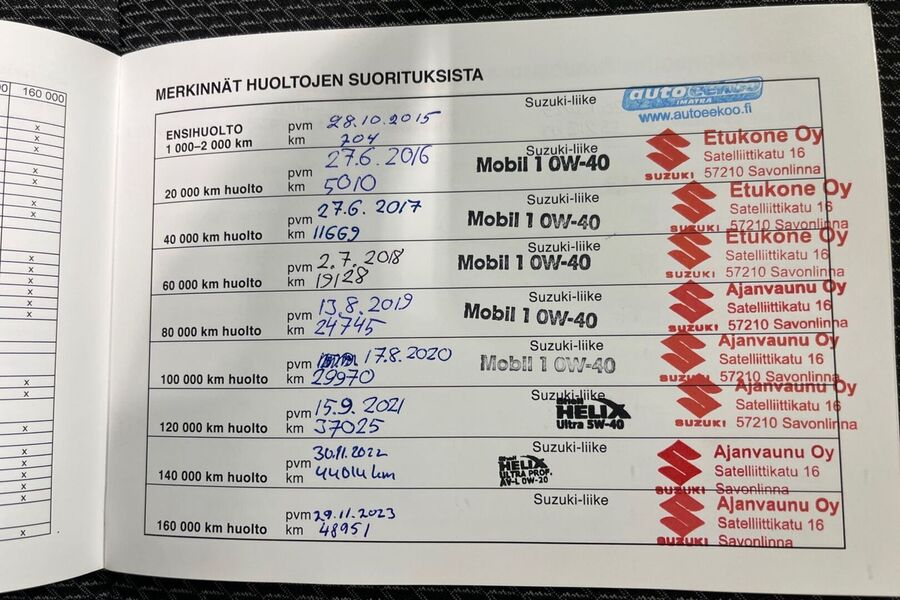 160 000
x
MERKINNÄT HUOLTOJEN SUORITUKSISTA
ENSIHUOLTO
1 000–2 000 km
pvm 28.10.2015
km 704
Suzuki-liike
autoeekoo
IMATRA
www.autoeekoo.fi
20 000 km huolto
pvm 27.6. 2016
km 5010
Suzuki-liike
Mobil 1 0W-40
SUZUKI
Etukone Oy
Satelliittikatu 16
57210 Savonlinna
40 000 km huolto
pvm 27.6. 2017
km 11669
Suzuki-liike
Mobil 1 0W-40
SUZUKI
Etukone Oy
Satelliittikatu 16
57210 Savonlinna
60 000 km huolto
pvm 2.7. 2018
km 19128
Suzuki-liike
Mobil 1 0W-40
SUZUKI
Etukone Oy
Satelliittikatu 16
57210 Savonlinna
80 000 km huolto
pvm 13.8. 2019
km 24745
Suzuki-liike
Mobil 1 0W-40
SUZUKI
Ajanvaunu Oy
Satelliittikatu 16
57210 Savonlinna
100 000 km huolto
pvm 17.8. 2020
km 29970
Suzuki-liike
Mobil 1 0W-40
SUZUKI
Ajanvaunu Oy
Satelliittikatu 16
57210 Savonlinna
120 000 km huolto
pvm 15.9. 2021
km 37025
Suzuki-liike
Shell
HELIX
Ultra 5W-40
SUZUKI
Ajanvaunu Oy
Satelliittikatu 16
57210 Savonlinna
140 000 km huolto
pvm 30.11.2022
km 44014 km
Suzuki-liike
Shell
HELIX
ULTRA PROF.
AV-L 0W-20
SUZUKI
Ajanvaunu Oy
Satelliittikatu 16
Savonlinna
160 000 km huolto
pvm 29.11.2023
km 48951
Suzuki-liike
SUZUKI
Ajanvaunu Oy
Satelliittikatu 16
Savonlinna